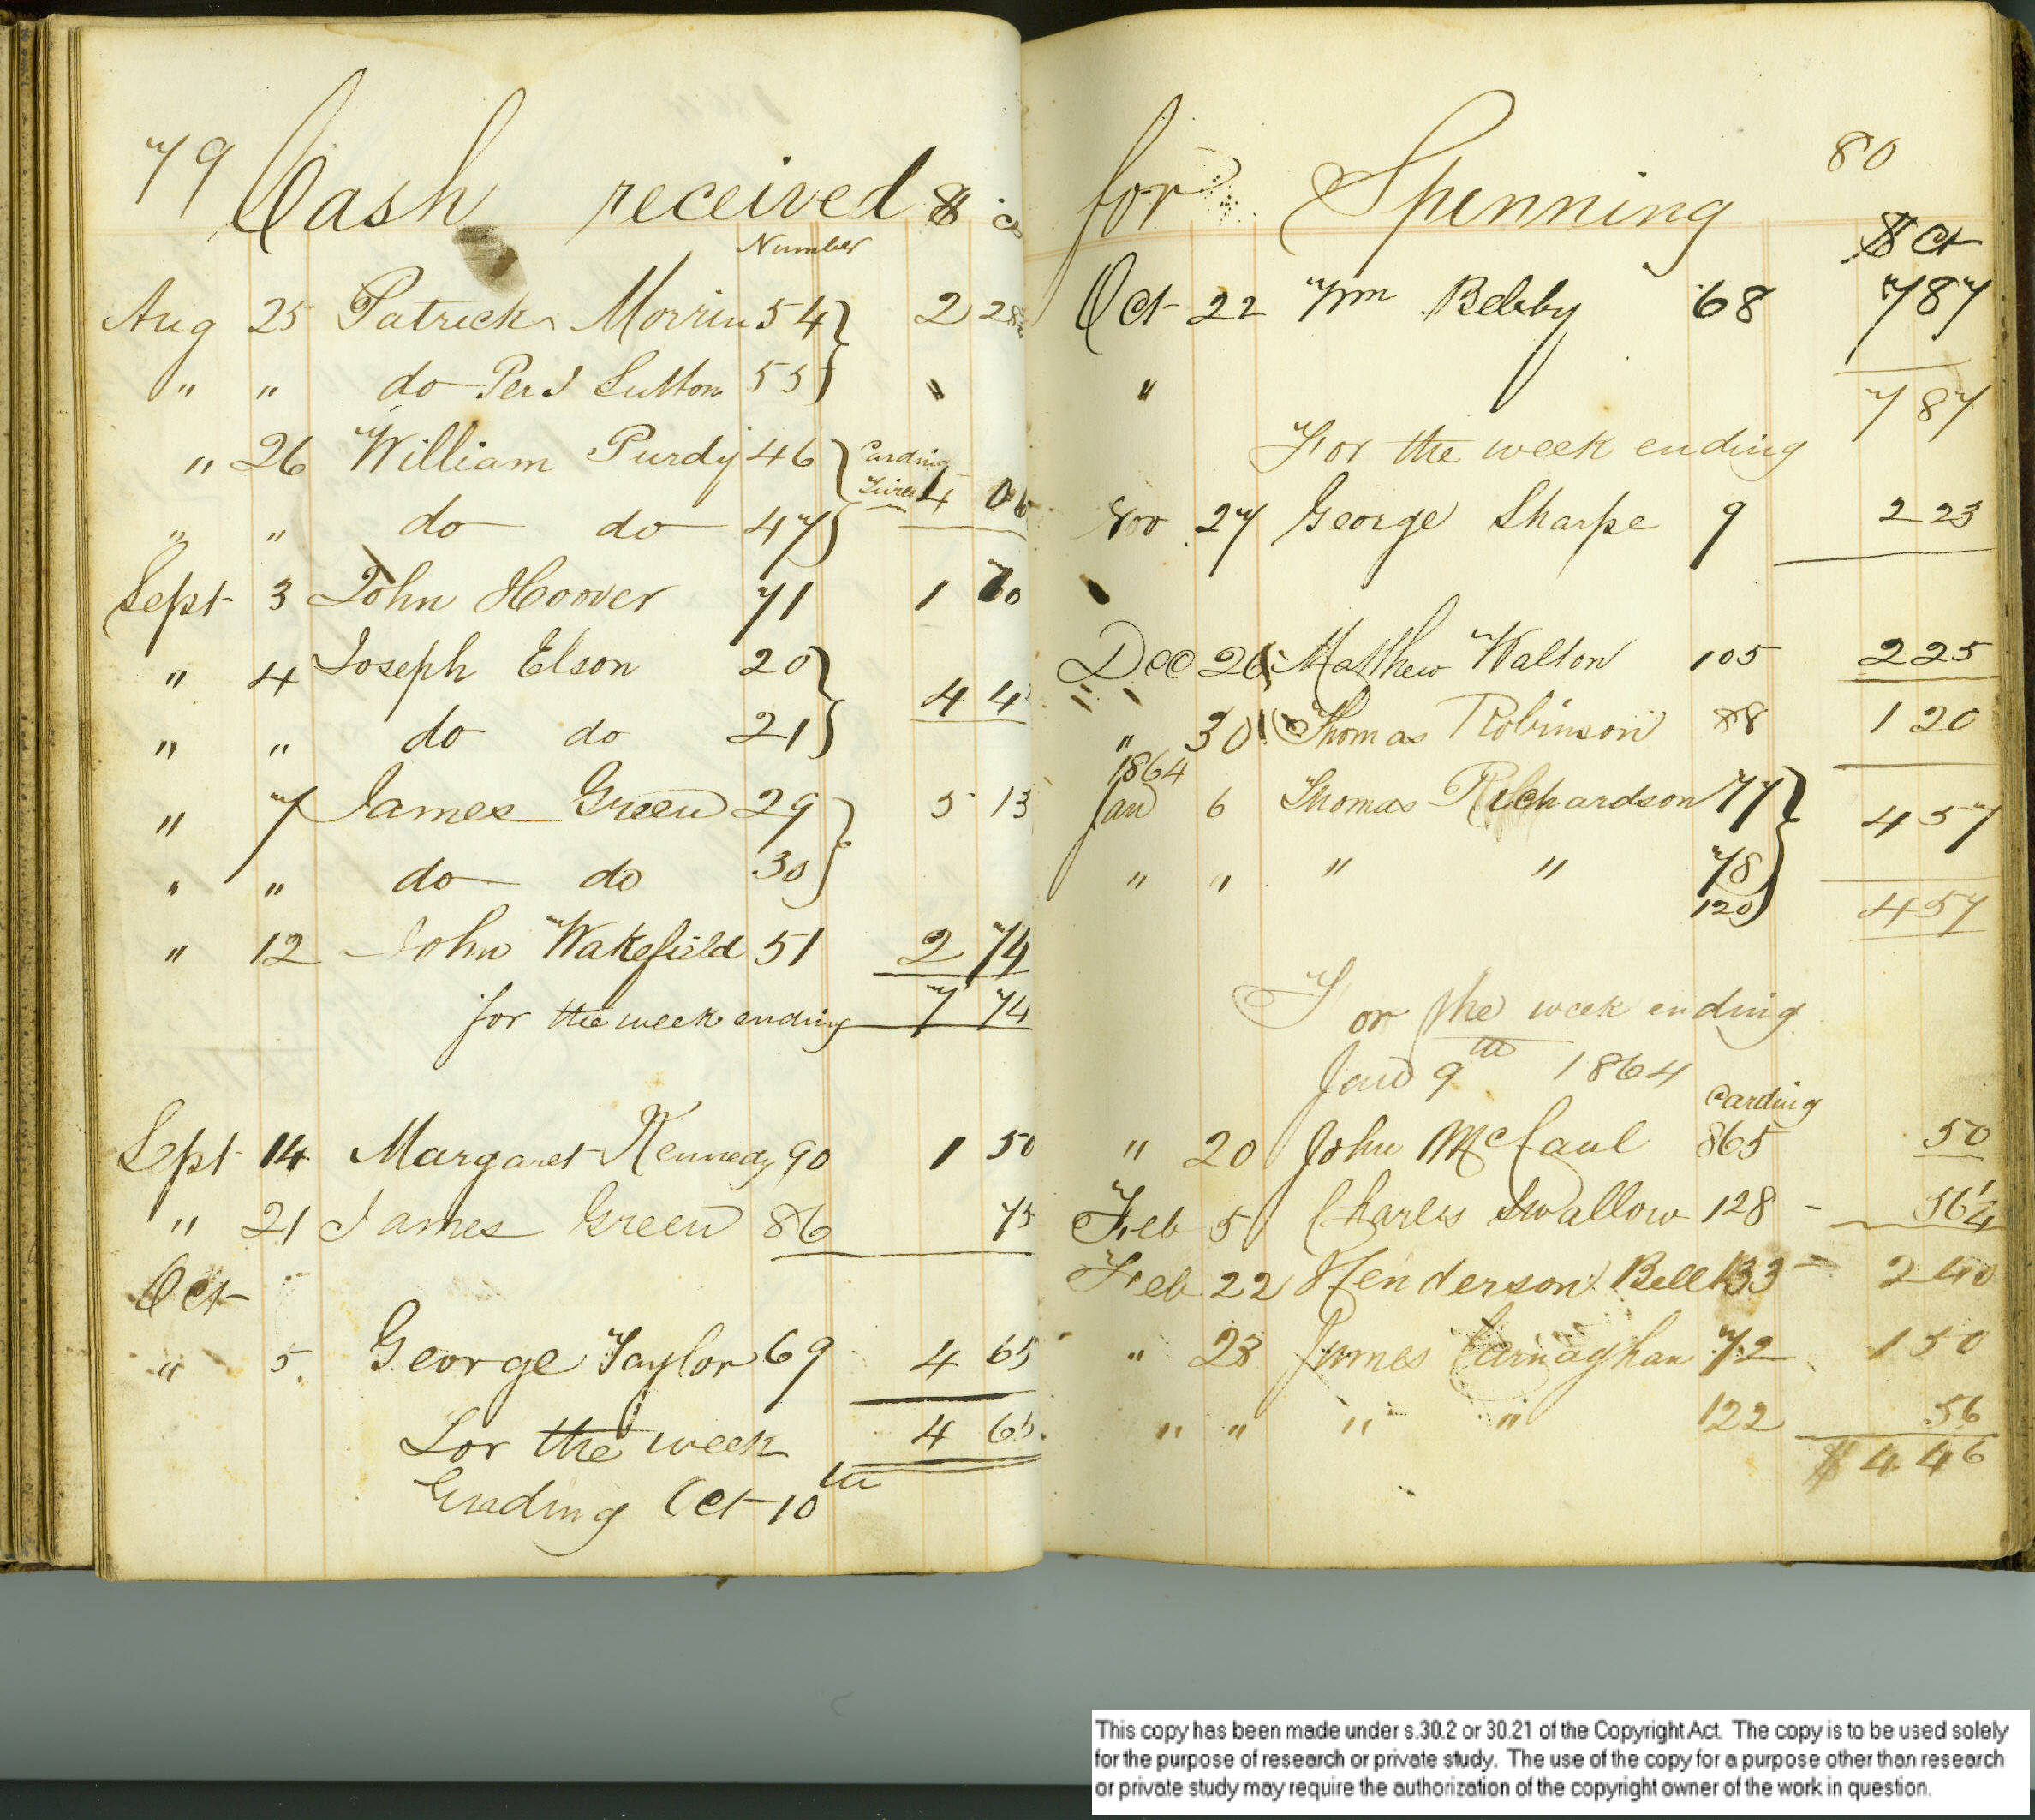 79 Cash received $ cts
Number
Aug 25 Patrick Morrin 54 } 2 28
" " do Per J Sutton 55 } "
" 26 William Purdy 46 } Carding
4 06
" " do do 47 }
Sept 3 John Hoover 71 1 60
" 4 Joseph Elson 20 }
4 4
" " do do 21 }
" 7 James Green 29 } 5 13
" " do do 30 }
" 12 John Wakefield 51 2 74
for the week ending 7 74
Sept 14 Margaret Kennedy 90 1 50
" 21 James Green 86 75
Oct
" 5 George Taylor 69 4 65
For the week 4 65
Ending Oct 10th
for Spinning 80
$ Ct
Oct 22 Wm Bebby 68 7 87
" 7 87
For the week ending
Nov 27 George Sharpe 9 2 23
Dec 26 Matthew Walton 105 2 25
" 30 Thomas Robinson 88 1 20
1864
Jan 6 Thomas Richardson 77 } 4 57
" " " " 78
120 } 4 57
For the week ending
Jan 9th 1864
Carding
" 20 John McCaul 865 50
Feb 5 Charles Swallow 128 - 56¼
Feb 22 Henderson Bell 133 - 2 40
" 23 James Carnaghan 72 1 50
" " " " 122 56
$ 4 46
This copy has been made under s.30.2 or 30.21 of the Copyright Act. The copy is to be used solely
for the purpose of research or private study. The use of the copy for a purpose other than research
or private study may require the authorization of the copyright owner of the work in question.